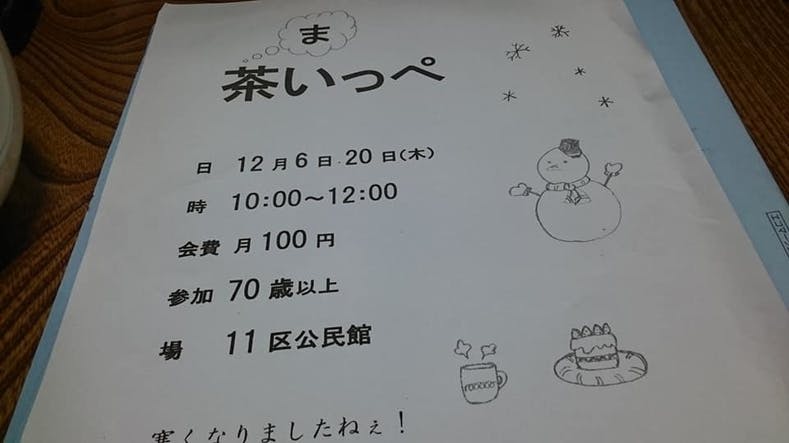 ま
茶いっぺ
日 12月6日·20日(木)
時 10:00～12:00
会費 月100円
参加 70歳以上
場 11区公民館
寒くなりましたねぇ!